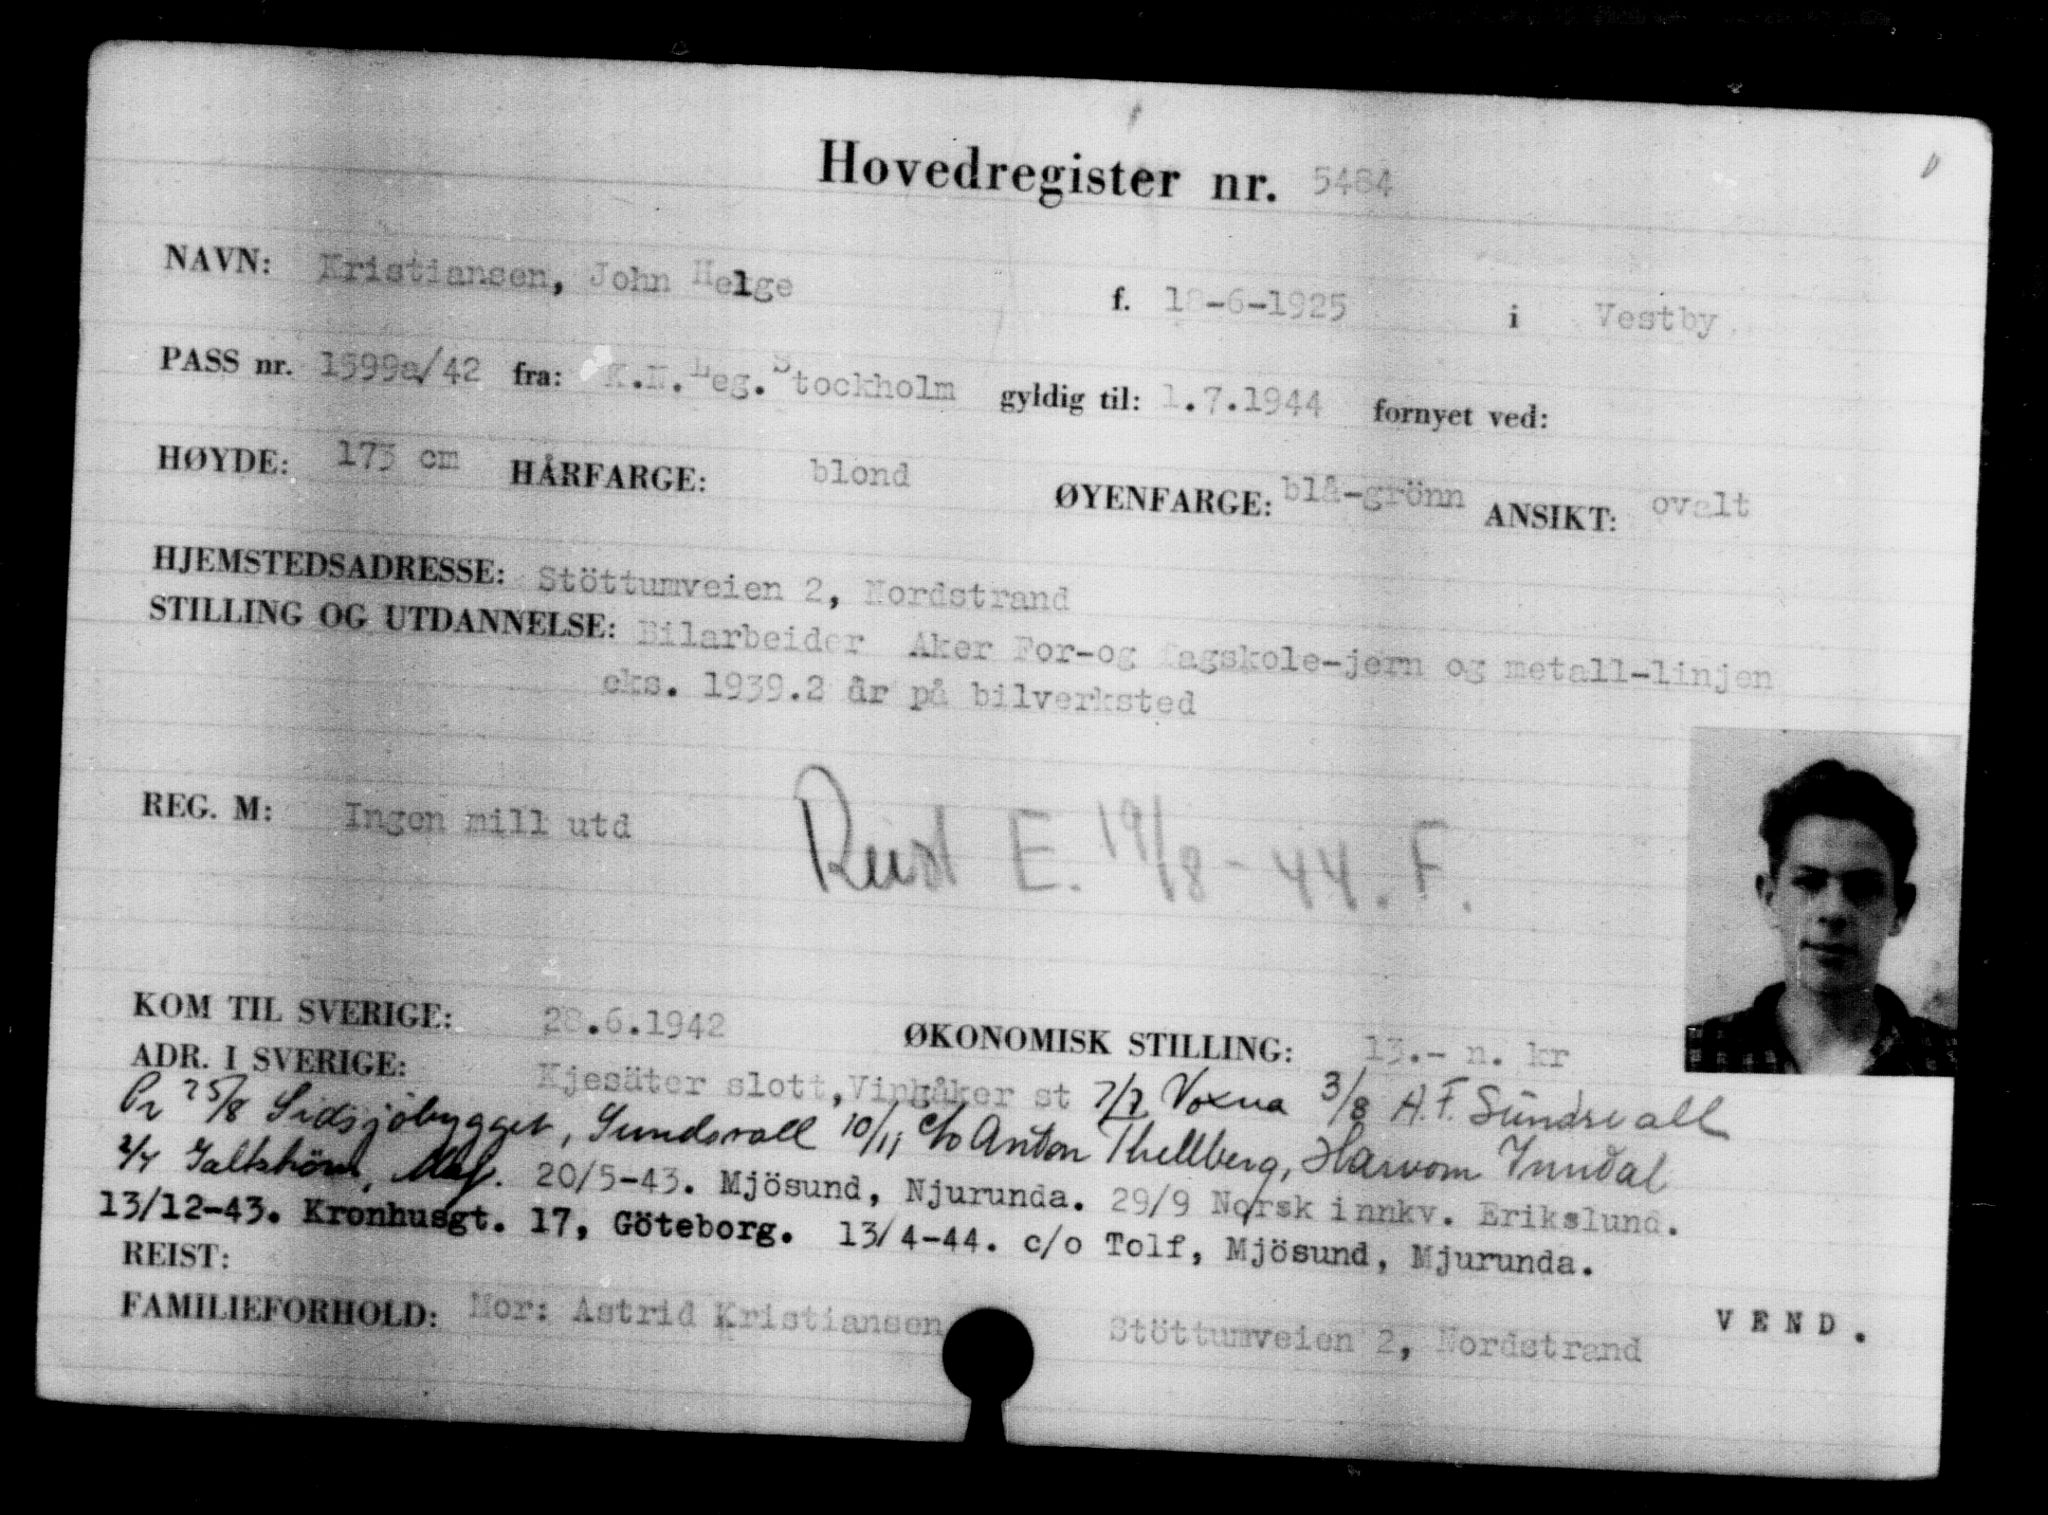 Hovedregister nr. 5484
NAVN: Kristiansen, John Helge f. 18-6-1925 i Vestby.
PASS nr. 1599a/42 fra: K.N.Leg.Stockholm gyldig til: 1.7.1944 fornyet ved:
HØYDE: 173 cm HÅRFARGE: blond ØYENFARGE: blå-grönn ANSIKT: ovalt
HJEMSTEDSADRESSE: Stöttumveien 2, Nordstrand
STILLING OG UTDANNELSE: Bilarbeider Aker For-og fagskole-jern og metall-linjen
eks. 1939.2 år på bilverksted
REG. M: Ingen mill utd
Reist E. 19/8-44. F.
KOM TIL SVERIGE: 28.6.1942 ØKONOMISK STILLING: 13.- n. kr
ADR. I SVERIGE: Kjesäter slott, Vingåker st 7/7 Voxna 3/8 A.F. Sundsvall
Pr 25/8 Sidsjöbygget, Sundsvall 10/11 c/o Anton Thellberg, Harvom Inndal
2/4 20/5-43. Mjösund, Njurunda. 29/9 Norsk innkv. Erikslund.
13/12-43. Kronhusgt. 17, Göteborg. 13/4-44. c/o Tolf, Mjösund, Mjurunda.
REIST:
FAMILIEFORHOLD: Mor: Astrid Kristiansen Stöttumveien 2, Nordstrand
VEND.